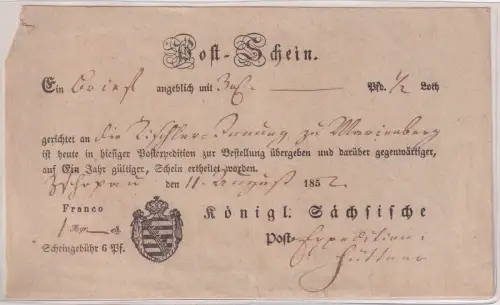 Post-Schein.
Ein Brief angeblich mit Pap. — Pfd. 1/2 Loth
gerichtet an die Tischler-Innung zu Marienberg
ist heute in hiesiger Postexpedition zur Bestellung übergeben und darüber gegenwärtiger,
auf Ein Jahr gültiger, Schein ertheilet worden.
Zschopau den 11. August 1852
Franco
Königl. Sächsische
1 Ngr. — Pf.
Post-Expedition:
Scheingebühr 6 Pf.
Hüttner